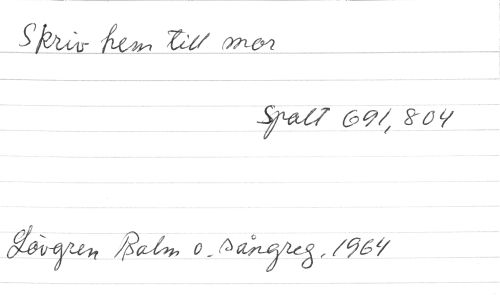 Skriv hem till mor
Spalt 691, 804
Lövgren Psalm o. sångreg. 1964